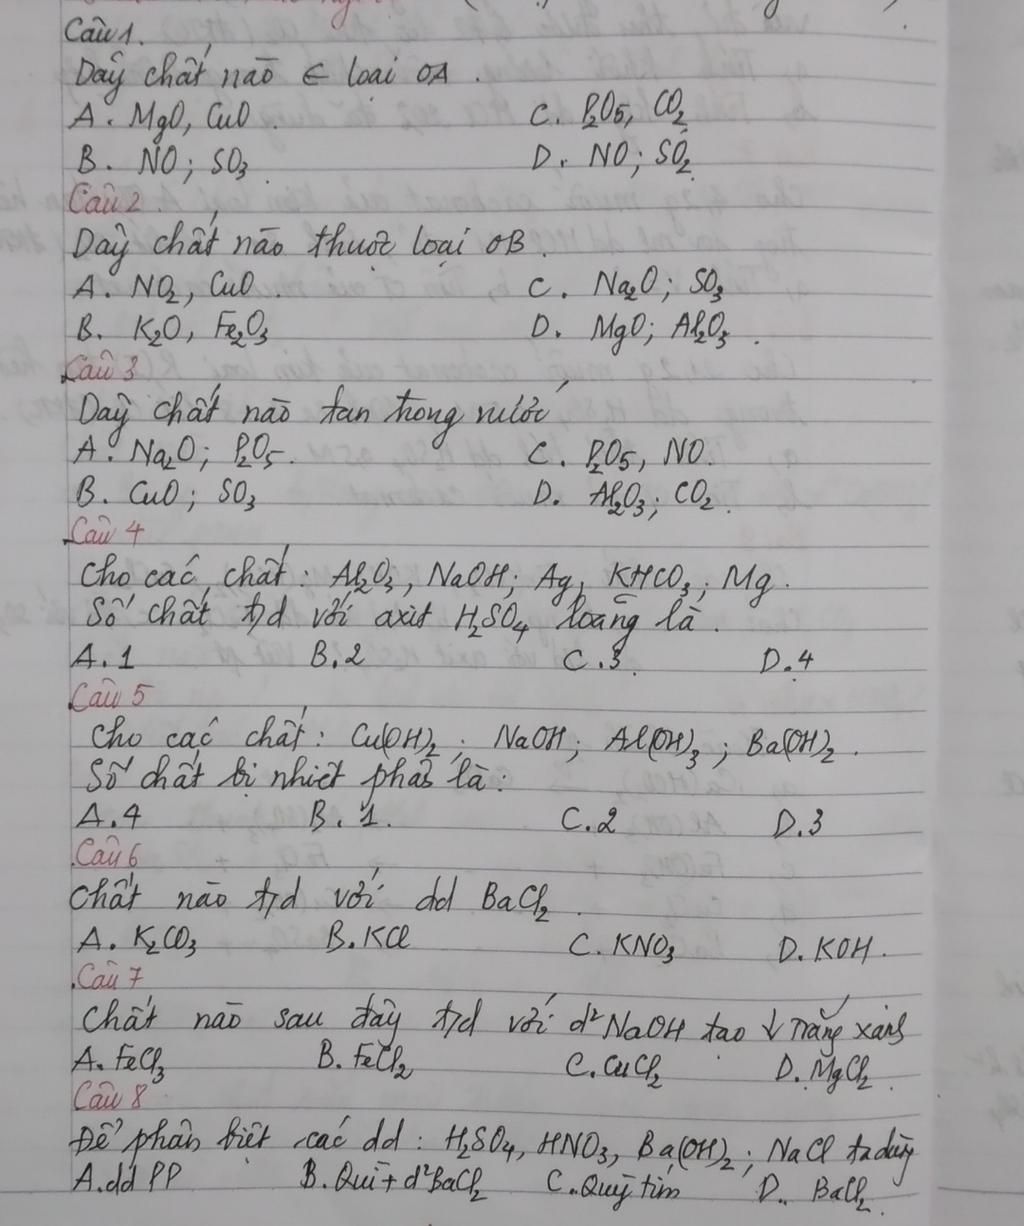 Câu 1.
Dãy chất nào ∈ loại OA.
A. MgO, CuO. C. P₂O₅, CO₂
B. NO; SO₃ D. NO; SO₂
Câu 2
Dãy chất nào thuộc loại OB.
A. NO₂, CuO. C. Na₂O; SO₃
B. K₂O, Fe₂O₃ D. MgO; Al₂O₃.
Câu 3
Dãy chất nào tan trong nước
A. Na₂O; P₂O₅. C. P₂O₅, NO.
B. CuO; SO₃ D. Al₂O₃; CO₂.
Câu 4
Cho các chất: Al₂O₃, NaOH; Ag, KHCO₃; Mg.
Số chất t/d với axit H₂SO₄ loãng là.
A. 1 B. 2 C. 3 D. 4
Câu 5
Cho các chất: Cu(OH)₂; NaOH; Al(OH)₃; Ba(OH)₂.
Số chất bị nhiệt phân là:
A. 4 B. 1. C. 2 D. 3
Câu 6
Chất nào t/d với dd BaCl₂.
A. K₂CO₃ B. KCl C. KNO₃ D. KOH.
Câu 7
Chất nào sau đây t/d với d² NaOH tạo ↓ trắng xanh
A. FeCl₃ B. FeCl₂ C. CuCl₂ D. MgCl₂.
Câu 8
Để phân biệt các dd: H₂SO₄, HNO₃, Ba(OH)₂; NaCl ta dùng
A. dd PP B. Quì + d² BaCl₂ C. Quỳ tím D. BaCl₂.